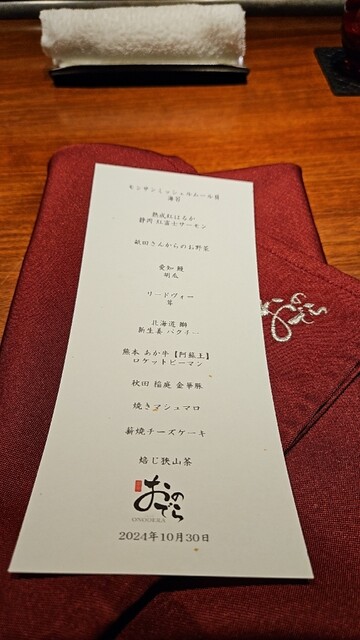 モンサンミッシェルムール貝
海苔
熟成紅はるか
静岡 紅富士サーモン
萩田さんからのお野菜
愛知 鰻
胡瓜
リードヴォー
茸
北海道 鰤
新生姜 パクチー
熊本 あか牛【阿蘇王】
ロケットピーマン
秋田 稲庭 金華豚
焼きマシュマロ
薪焼チーズケーキ
焙じ狭山茶
おのでら
ONODERA
2024年10月30日